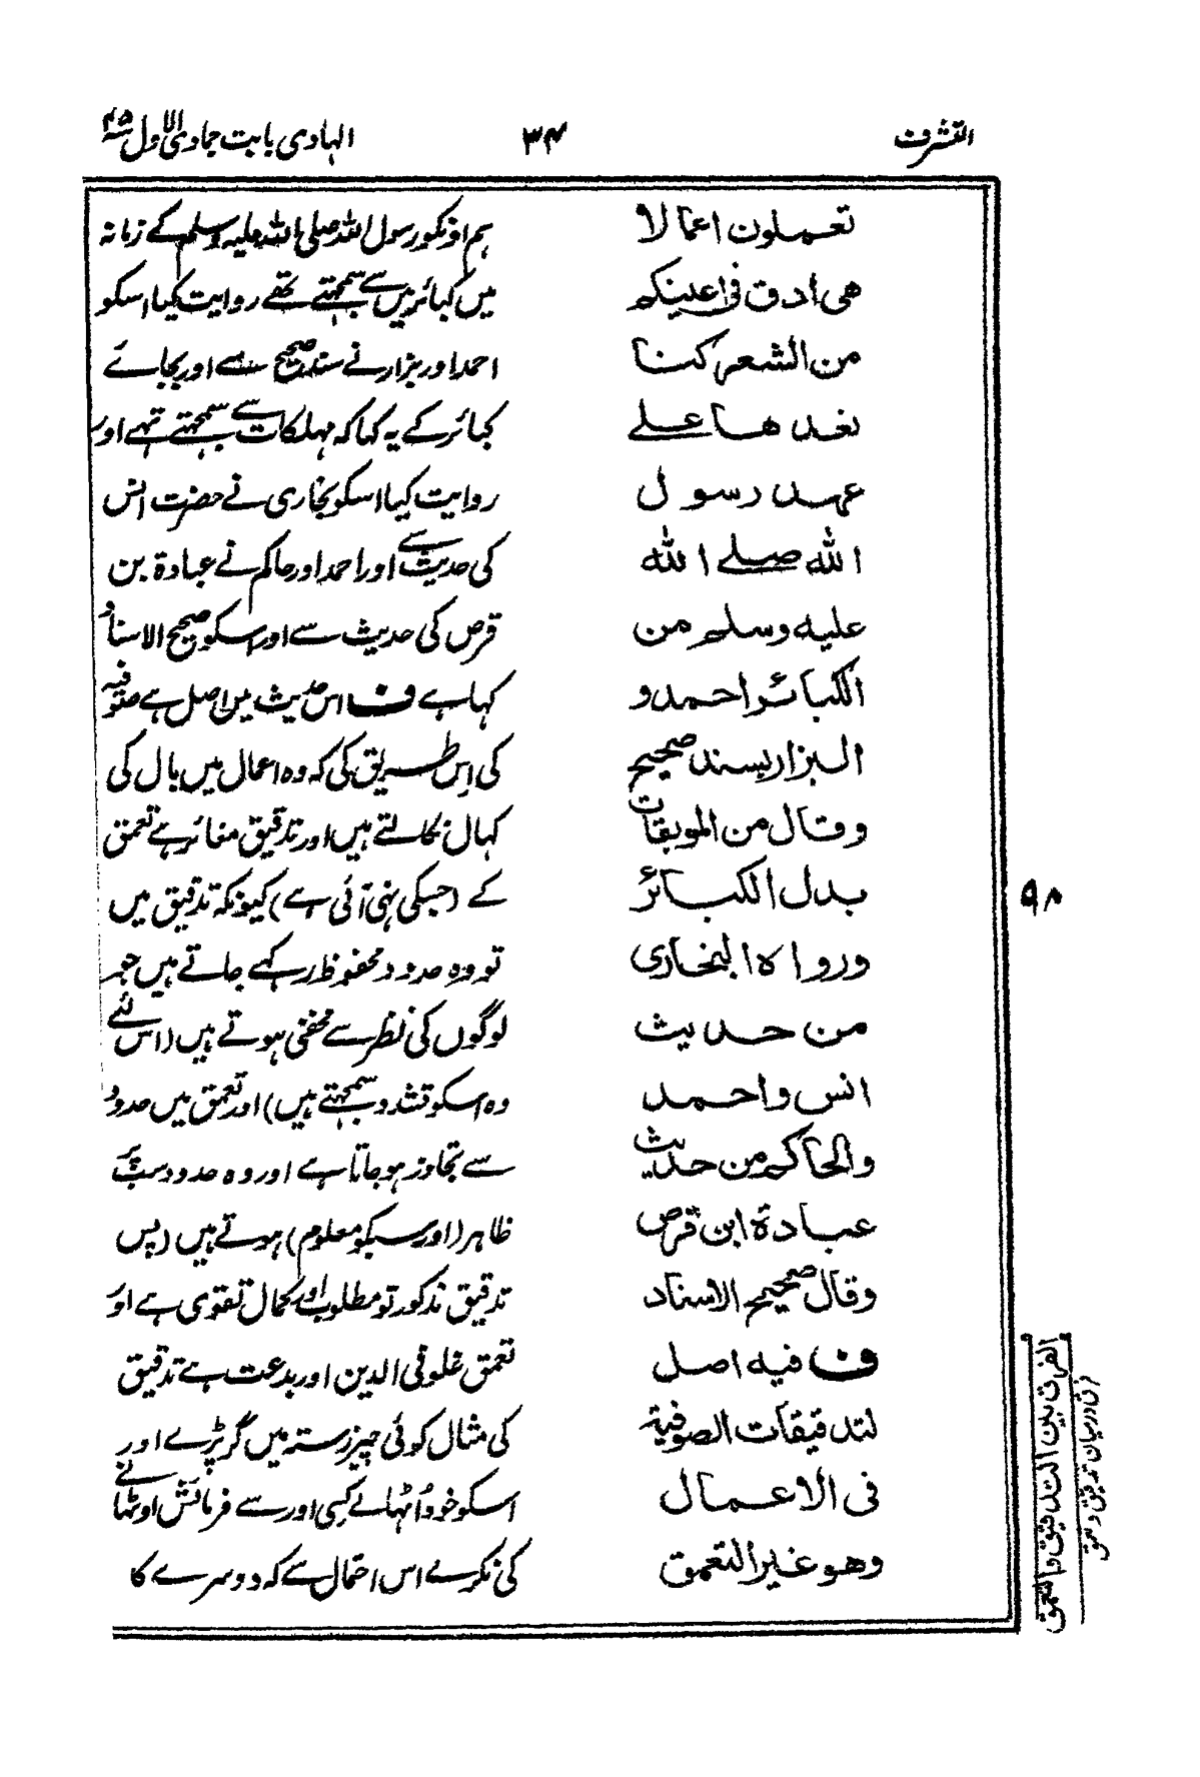 التشرف
۳۴
الہادی بابت جمادی الاول ۴۵ھ
تعملون اعمالا
هی ادق فی اعینکم
من الشعر کنا
نعدها علے
عهد رسول
الله صلے الله
علیه وسلم من
الکبائر احمد و
البزار بسند صحیح
وقال من الموبقات
بدل الکبائر
ورواه البخاری
من حدیث
انس واحمد
والحاکم من حدیث
عبادة ابن قرص
وقال صحیح الاسناد
ف فیه اصل
لتدقیقات الصوفیة
فی الاعمال
وهو غیر التعمق
ہم اونکو رسول اللہ صلی اللہ علیہ وسلم کے زمانہ
میں کبائر میں سے سمجھتے تھے روایت کیا اسکو
احمد اور بزار نے سند صحیح سے اور بجائے
کبائر کے یہ کہا کہ مہلکات سے سمجھتے تہے اور
روایت کیا اسکو بخاری نے حضرت انس
کی حدیث سے اور احمد اور حاکم نے عبادۃ بن
قرص کی حدیث سے اور اسکو صحیح الاسناد
کہا ہے ف اس حدیث میں اصل ہے صوفیہ
کی اِس طریق کی کہ وہ اعمال میں بال کی
کہال نکالتے ہیں اور تدقیق مغائر ہے تعمق
کے (جسکی نہی آئی ہے) کیونکہ تدقیق میں
تو وہ حدود محفوظ رکہے جاتے ہیں جو
لوگوں کی نظر سے مخفی ہوتے ہیں (اس لئے
وہ اسکو تشدد سمجہتے ہیں) اور تعمق میں حدود
سے تجاوز ہو جاتا ہے اور وہ حدود سب پر
ظاہر (اور سبکو معلوم) ہوتے ہیں (پس
تدقیق مذکور تو مطلوب اور کمال تقوی ہے اور
تعمق غلو فی الدین اور بدعت ہے تدقیق
کی مثال کوئی چیز رستہ میں گر پڑے اور
اسکو خود اُٹہالے کسی اور سے فرمائش اوٹہانے
کی نکرے اس احتمال سے کہ دوسرے کا
۹۸
الفرق بین التدقیق والتعمق
فرق درمیان تدقیق و تعمق